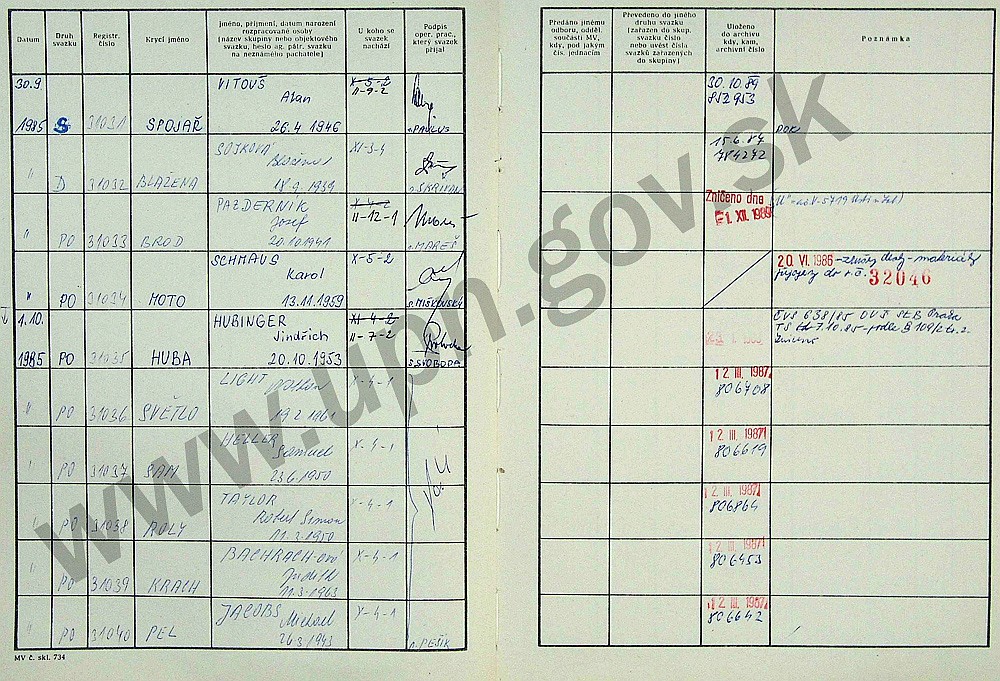 Datum
Druh
svazku
Registr.
číslo
Krycí jméno
Jméno, příjmení, datum narození
rozpracované osoby
(název skupiny nebo objektového
svazku, heslo ag. pátr. svazku
na neznámého pachatele)
U koho se
svazek
nachází
Podpis
oper. prac.,
který svazek
přijal
Předáno jinému
odboru, odděl.
součásti MV,
kdy, pod jakým
čís. jednacím
Převedeno do jiného
druhu svazku
(zařazen do skup.
svazku číslo
nebo uvést čísla
svazků zařazených
do skupiny)
Uloženo
do archivu
kdy, kam,
archivní číslo
Poznámka
30.9
VITOUŠ
X-5-2
II-9-2
30.10.89
Alan
852953
1985 S 31031 SPOJAŘ 26.4 1946 PAVLUS
SOJKOVÁ XI-3-4
15.6.87
784272
" D 31032 BLAŽENA 18.9.1939 SKŘIVAN
PAZDERNÍK X-4-2
II-12-1
Zničeno dne
1. XII. 1989
Josef
" PO 31033 BROD 20.10.1941 MAREŠ
SCHMAUS X-5-2
20. VI. 1986
Karol
32046
" PO 31034 MOTO 13.11.1959 MIŠKOVSKÝ
1.10. HUBINGER XI-4-2
II-7-2
EVS 638/85 OVS StB Praha
Jindřich
1985 PO 31035 HUBA 20.10.1953 SVOBODA
LIGHT X-4-1
12. III. 1987
806708
" PO 31036 SVĚTLO 19.2.1961
HELLER X-4-1
12. III. 1987
Samuel
806619
" PO 31037 SAM 23.6.1950
TAYLOR X-4-1
12. III. 1987
Robert Simon
806864
" PO 31038 ROLY 11.3.1950
BACHRACH-ová X-4-1
12. III. 1987
Judith
806453
" PO 31039 KRACH 11.3.1963
JACOBS Michael X-4-1
12. III. 1987
806642
" PO 31040 PEL 26.3.1943 PEŠÍK
MV č. skl. 734
www.upn.gov.sk